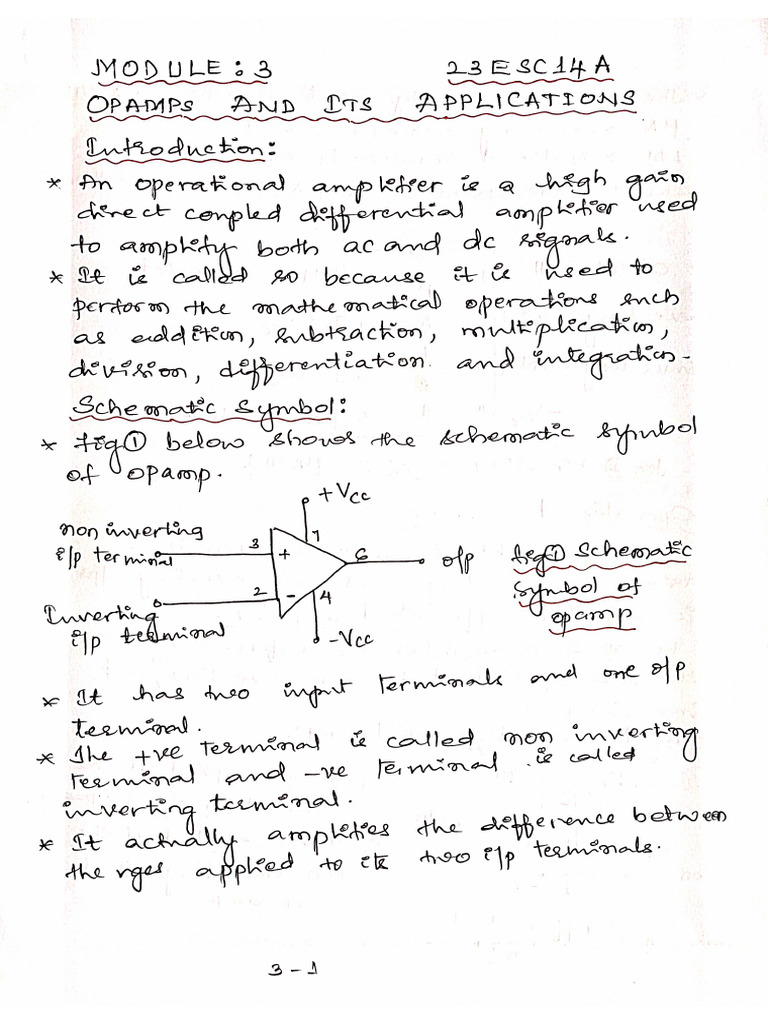 MODULE: 3 23ESC14A
OPAMPS AND ITS APPLICATIONS
Introduction:
* An operational amplifier is a high gain
direct coupled differential amplifier used
to amplify both ac and dc signals.
* It is called so because it is used to
perform the mathematical operations such
as addition, subtraction, multiplication,
division, differentiation and integration.
Schematic Symbol:
* fig① below shows the schematic symbol
of opamp.
+Vcc
non inverting
i/p terminal
3
+
7
6
o/p
2
-
4
Inverting
i/p terminal
-Vcc
fig① Schematic
symbol of
opamp
* It has two input terminals and one o/p
terminal.
* The +ve terminal is called non inverting
terminal and -ve terminal is called
inverting terminal.
* It actually amplifies the difference between
the vges applied to its two i/p terminals.
3-1